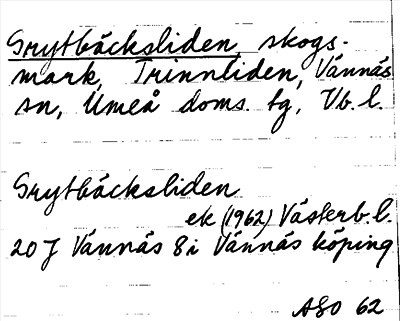 Grytbäcksliden, skogs-
mark, Trinnliden, Vännäs
sn, Umeå doms. tg, Vb. l.
Grytbäcksliden
ek (1962) Västerb. l.
20 J Vännäs 8 i Vännäs köping
ASO 62